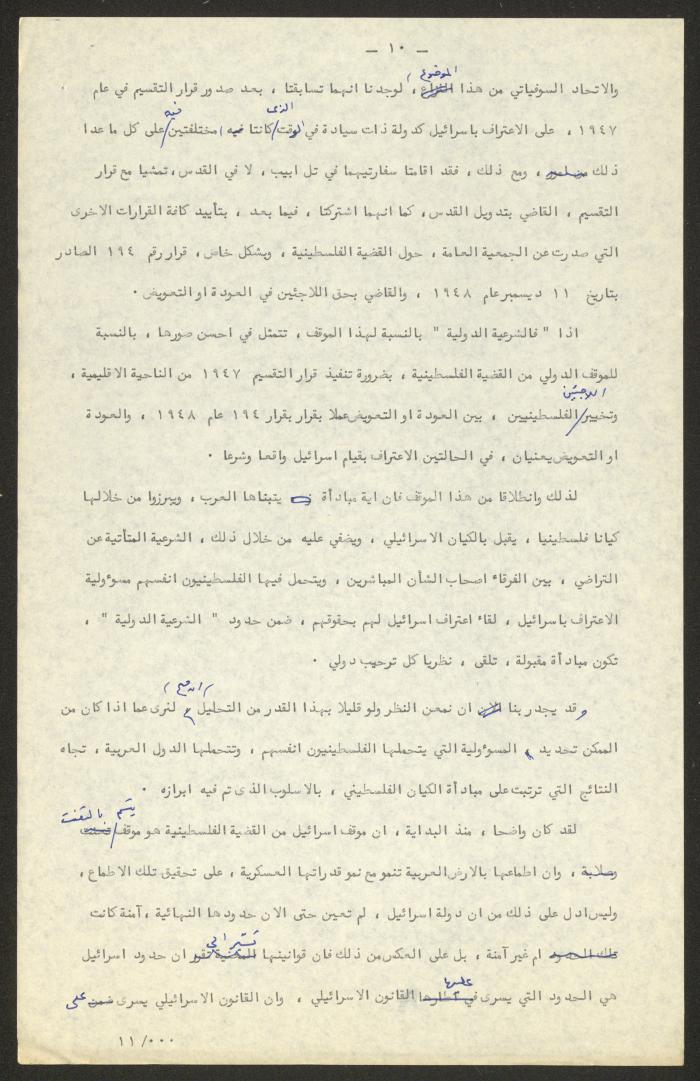 — ١٠ —
الموضوع
والاتحاد السوفياتي من هذا النزاع ، لوجدنا انهما تسابقتا ، بعد صدور قرار التقسيم في عام
الذى
فيه
١٩٤٧ ، على الاعتراف باسرائيل كدولة ذات سيادة في الوقت / كانتا فيه مختلفتين / على كل ما عدا
ذلك ، ومع ذلك ، فقد اقامتا سفارتيهما في تل ابيب ، لا في القدس ، تمشيا مع قرار
التقسيم ، القاضي بتدويل القدس ، كما انهما اشتركتا ، فيما بعد ، بتأييد كافة القرارات الاخرى
التي صدرت عن الجمعية العامة ، حول القضية الفلسطينية ، وبشكل خاص ، قرار رقم ١٩٤ الصادر
بتاريخ ١١ ديسمبر عام ١٩٤٨ ، والقاضي بحق اللاجئين في العودة او التعويض .
اذا " فالشرعية الدولية " بالنسبة لهذا الموقف ، تتمثل في احسن صورها ، بالنسبة
للموقف الدولي من القضية الفلسطينية ، بضرورة تنفيذ قرار التقسيم ١٩٤٧ من الناحية الاقليمية ،
اللاجئين
وتخيير / الفلسطينيين ، بين العودة او التعويض عملا بقرار بقرار ١٩٤ عام ١٩٤٨ ، والعودة
او التعويض يعنيان ، في الحالتين الاعتراف بقيام اسرائيل واقعا وشرعا .
لذلك وانطلاقا من هذا الموقف فان اية مبادأة يتبناها العرب ، ويبرزوا من خلالها
كيانا فلسطينيا ، يقبل بالكيان الاسرائيلي ، ويضفي عليه من خلال ذلك ، الشرعية المتأتية عن
التراضي ، بين الفرقاء اصحاب الشأن المباشرين ، ويتحمل فيها الفلسطينيون انفسهم مسوءولية
الاعتراف باسرائيل ، لقاء اعتراف اسرائيل لهم بحقوقهم ، ضمن حدود " الشرعية الدولية " ،
تكون مبادأة مقبولة ، تلقى ، نظريا كل ترحيب دولي .
وقد يجدر بنا الان ان نمعن النظر ولو قليلا بهذا القدر من التحليل لنرى عما اذا كان من
الممكن تحديد المسوءولية التي يتحملها الفلسطينيون انفسهم ، وتتحملها الدول العربية ، تجاه
النتائج التي ترتبت على مبادأة الكيان الفلسطيني ، بالاسلوب الذى تم فيه ابرازه .
يتسم بالتعنت
لقد كان واضحا ، منذ البداية ، ان موقف اسرائيل من القضية الفلسطينية هو موقف / تعنت
وصلابة ، وان اطماعها بالارض العربية تنمو مع نمو قدراتها العسكرية ، على تحقيق تلك الاطماع ،
وليس ادل على ذلك من ان دولة اسرائيل ، لم تعين حتى الان حدودها النهائية ، آمنة كانت
تشير الى
تلك الحدود ام غير آمنة ، بل على العكس من ذلك فان قوانينها المدنية تقرر ان حدود اسرائيل
عليها
هي الحدود التي يسرى في اطارها القانون الاسرائيلي ، وان القانون الاسرائيلي يسرى ضمن على
١١/٠٠٠